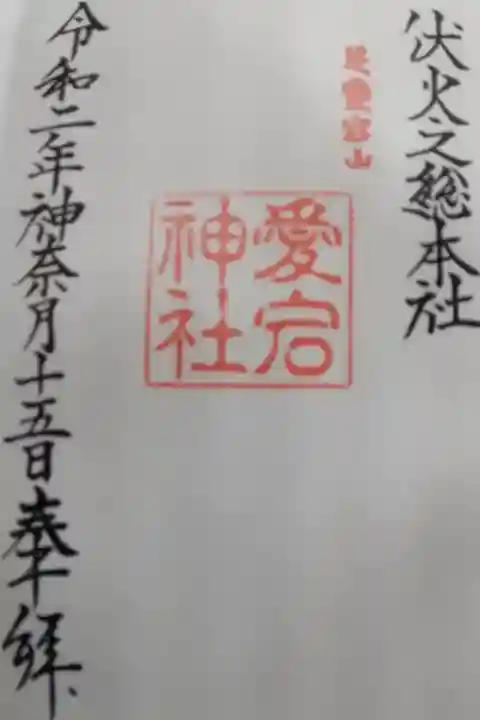 伏火之総本社
愛宕
神社
令和二年神奈月十五日奉拝